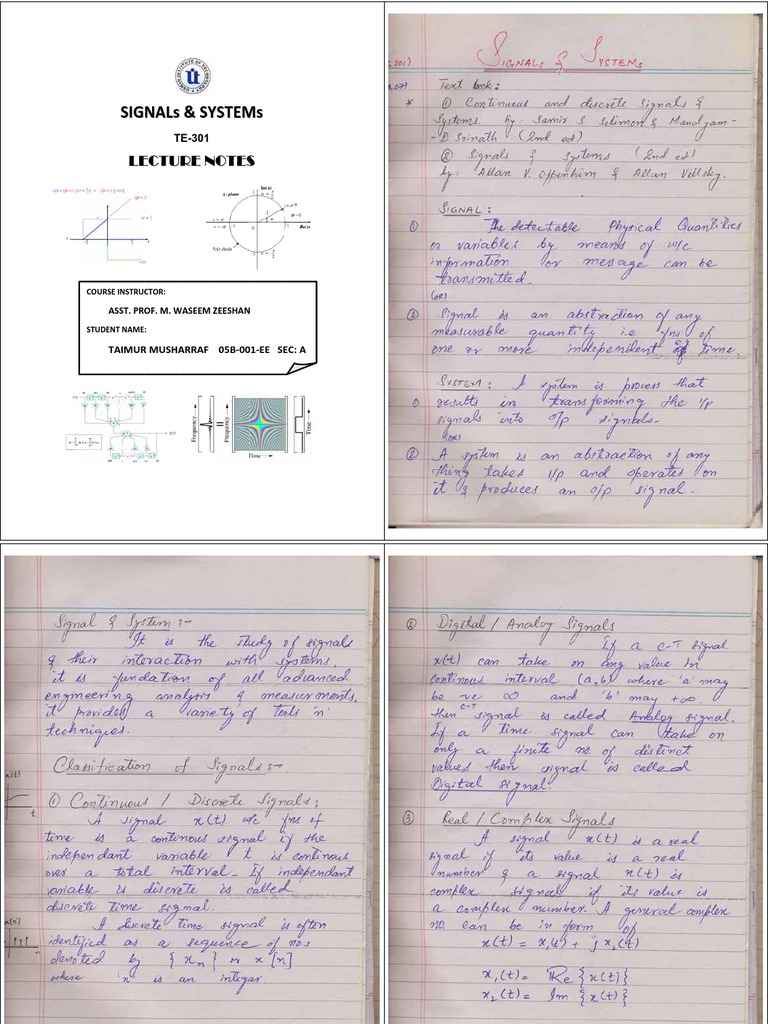 SIGNALs & SYSTEMs
TE-301
LECTURE NOTES
COURSE INSTRUCTOR:
ASST. PROF. M. WASEEM ZEESHAN
STUDENT NAME:
TAIMUR MUSHARRAF 05B-001-EE SEC: A
Frequency
Time
Frequency
Time
SIGNALs & SYSTEMs
Text book:
* ① Continuous and discrete Signals &
Systems. by: Samir S Solimon & Mandyam-
- D. Srinath (2nd ed)
② Signals & Systems (2nd ed)
by: Allan V. Oppenhim & Allan Villsky.
SIGNAL:
① The detectable Physical Quantities
or variables by means of w/c
information or message can be
transmitted.
(OR)
② Signal is an abstraction of any
measurable quantity i.e fns of
one or more independent of time.
SYSTEM: A system is process that
① results in transforming the i/p
signals into o/p signals.
(OR)
② A system is an abstraction of any
thing takes i/p and operates on
it & produces an o/p signal.
Signal & System :-
It is the study of signals
& their interaction with systems,
it is fundation of all advanced
engineering analysis & measurments.
it provides a variety of tools 'n'
techniques.
Classification of Signals :-
x(t)
t
① Continuous / Discrete Signals :
A signal x(t) w/c fns of
time is a continous signal if the
independant variable t is continous
over a total interval. If independant
variable is discrete is called
discrete time signal.
A discrete time signal is often
x[n]
identified as a sequence of no.s
denoted by { xn } or x [n]
n
where 'n' is an integar
② Digital / Analog Signals
If a C-T signal
x(t) can take on any value in
continous interval (a,b) where 'a' may
be -ve ∞ and 'b' may +∞.
then C-T signal is called Analog signal.
If a time signal can take on
only a finite no. of distinct
values then signal is called
Digital signal.
③ Real / Complex Signals
A signal x(t) is a real
signal if its value is a real
number & a signal x(t) is
complex signal if its value is
a complex number. A general complex
no. can be in form of
x(t) = x1(t) + j x2(t)
x1(t) = Re {x(t)}
x2(t) = Im {x(t)}